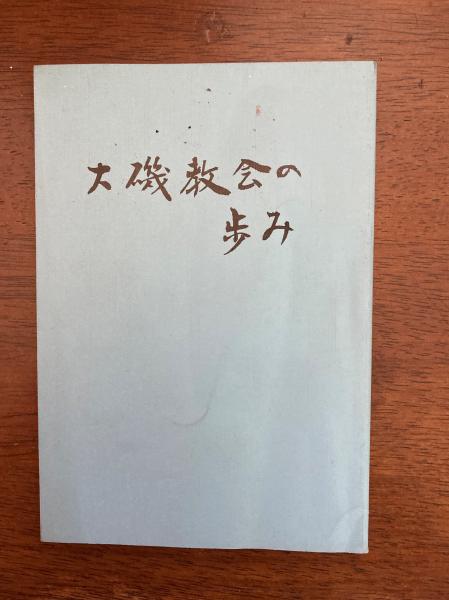 大磯教会の
歩み